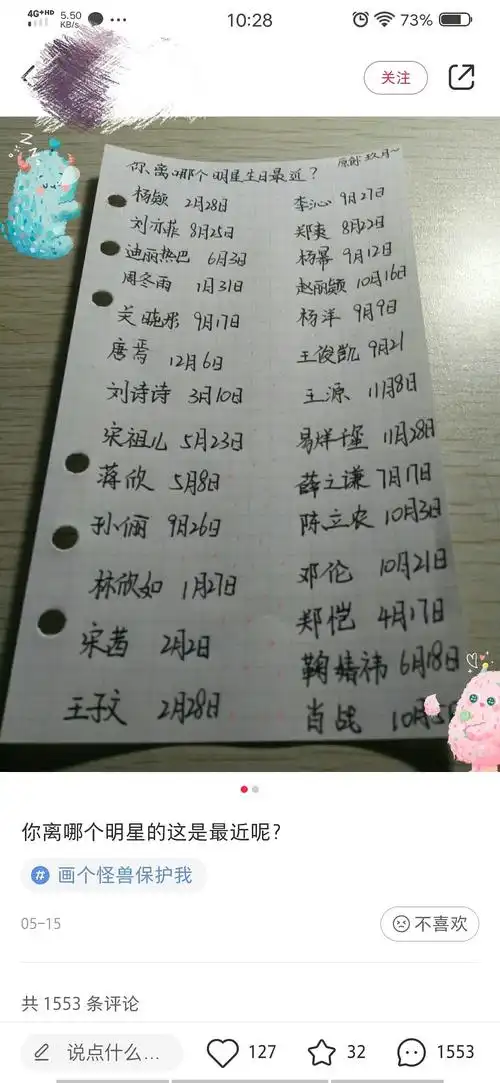 4G+HD 5.50 KB/s 10:28 73%
关注
你离哪个明星生日最近?
原创:玖月~
杨颖 2月28日
刘亦菲 8月25日
迪丽热巴 6月3日
周冬雨 1月31日
关晓彤 9月17日
唐嫣 12月6日
刘诗诗 3月10日
宋祖儿 5月23日
蒋欣 5月8日
孙俪 9月26日
林欣如 1月27日
宋茜 2月2日
王子文 2月28日
李沁 9月27日
郑爽 8月22日
杨幂 9月12日
赵丽颖 10月16日
杨洋 9月9日
王俊凯 9月21
王源 11月8日
易烊千玺 11月28日
薛之谦 7月17日
陈立农 10月3日
邓伦 10月21日
郑恺 4月17日
鞠婧祎 6月18日
肖战 10月5
你离哪个明星的这是最近呢?
# 画个怪兽保护我
05-15
不喜欢
共 1553 条评论
说点什么... 127 32 1553